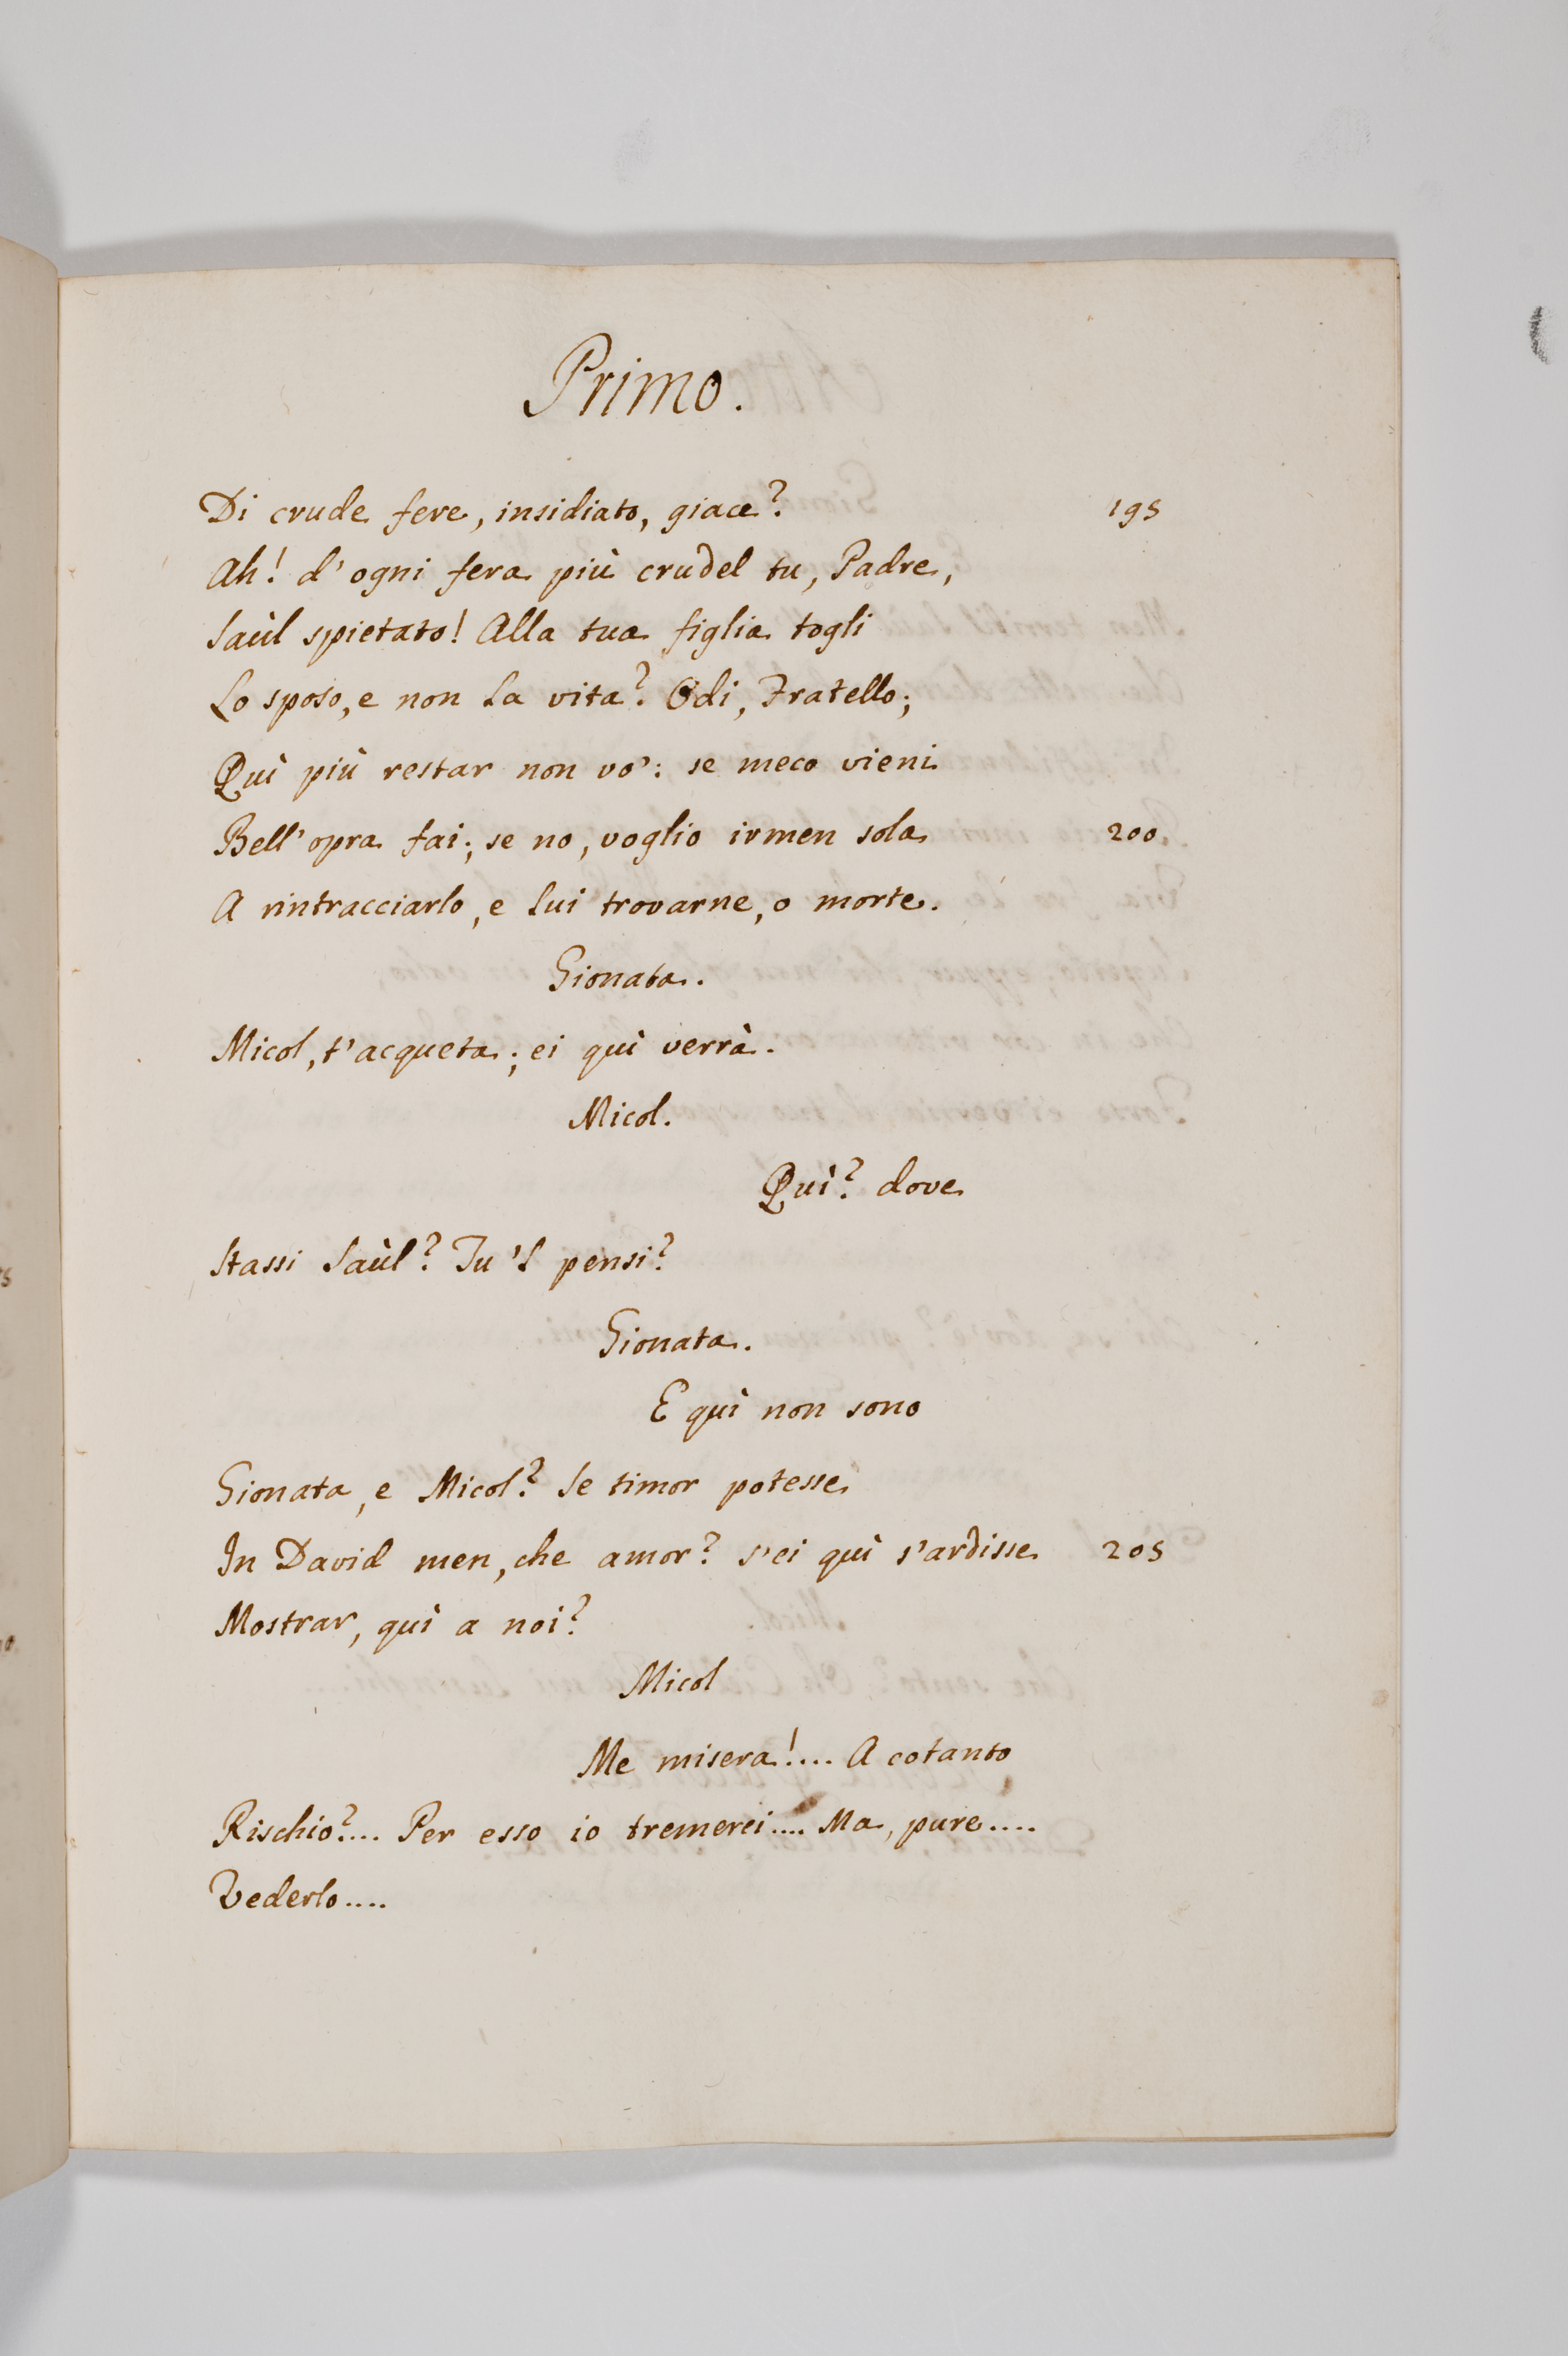 Primo.
Di crude fere, insidiato, giace? 195
Ah! d'ogni fera più crudel tu, Padre,
Saùl spietato! Alla tua figlia togli
Lo sposo, e non la vita? Odi, Fratello;
Quì più restar non vo': se meco vieni
Bell'opra fai; se no, voglio irmen sola 200.
A rintracciarlo, e lui trovarne, o morte.
Gionata.
Micol, t'acqueta; ei quì verrà.
Micol.
Quì? dove
Stassi Saùl? Tu 'l pensi?
Gionata.
E quì non sono
Gionata, e Micol? Se timor potesse
In David men, che amor? s'ei quì s'ardisse 205
Mostrar, quì a noi?
Micol
Me misera!.... A cotanto
Rischio?.... Per esso io tremerei.... Ma, pure....
Vederlo....